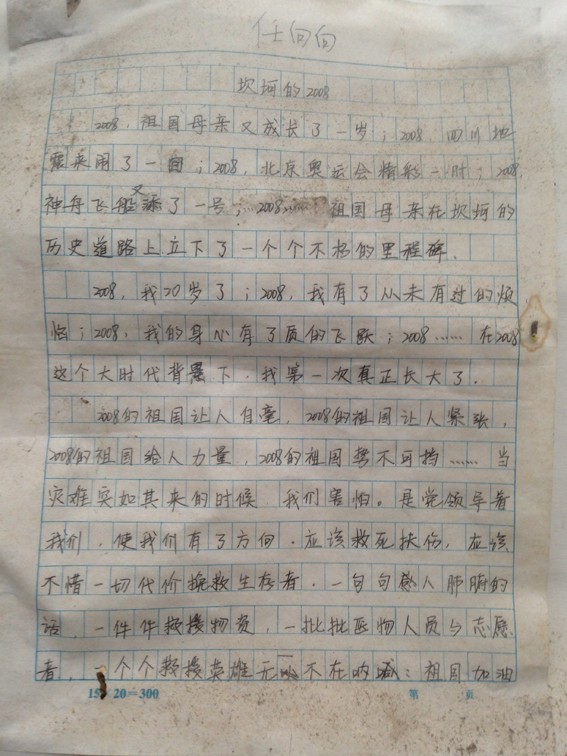 任向向
坎坷的2008
2008，祖国母亲又成长了一岁；2008，四川地
震来闹了一回；2008，北京奥运会精彩一时；2008，
神舟飞船又添了一号；2008……祖国母亲在坎坷的
历史道路上立下了一个个不朽的里程碑．
2008，我20岁了；2008，我有了从未有过的烦
恼；2008，我的身心有了质的飞跃；2008……在2008
这个大时代背景下．我第一次真正长大了．
2008的祖国让人自豪，2008的祖国让人紧张，
2008的祖国给人力量，2008的祖国势不可挡……当
灾难突如其来的时候 我们害怕。是党领导着
我们．使我们有了方向．应该救死扶伤，应该
不惜一切代价挽救生存者．一句句感人肺腑的
话，一件件救援物资，一批批医物人员与志愿
者，一个个救援英雄无不在呐喊：祖国加油
15×20=300
第 页